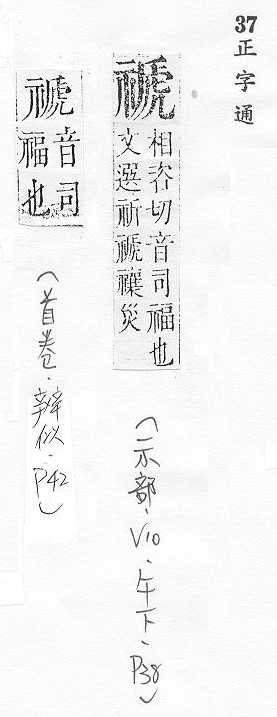 37
正字通
禠
相咨切音司福也
文選祈禠禳災
(示部、V10、午下、P38)
禠
音司
福也
(首卷、辨似、P42)